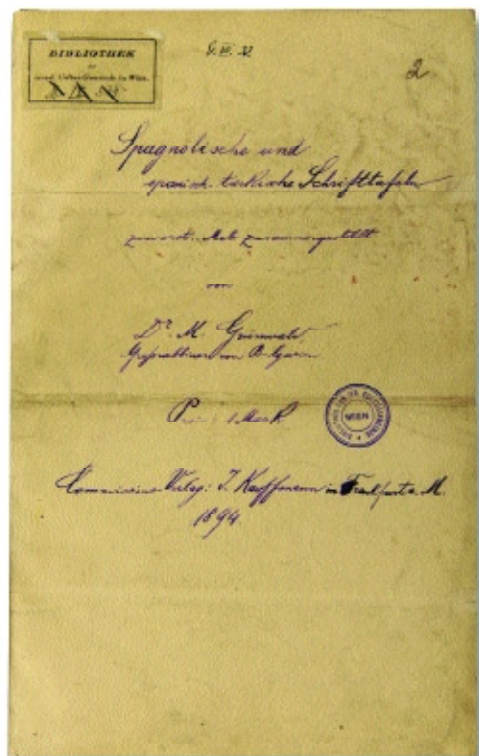 BIBLIOTHEK
der
israel. Cultus-Gemeinde in Wien.
2
Spagnolische und
spanisch-türkische Schrifttafeln
zum ersten Male zusammengestellt
von
Dr. M. Grünwald
Großrabbiner von Bulgarien
Preis 1 Mark
WIEN
Commissions-Verlag: J. Kauffmann in Frankfurt a. M.
1894